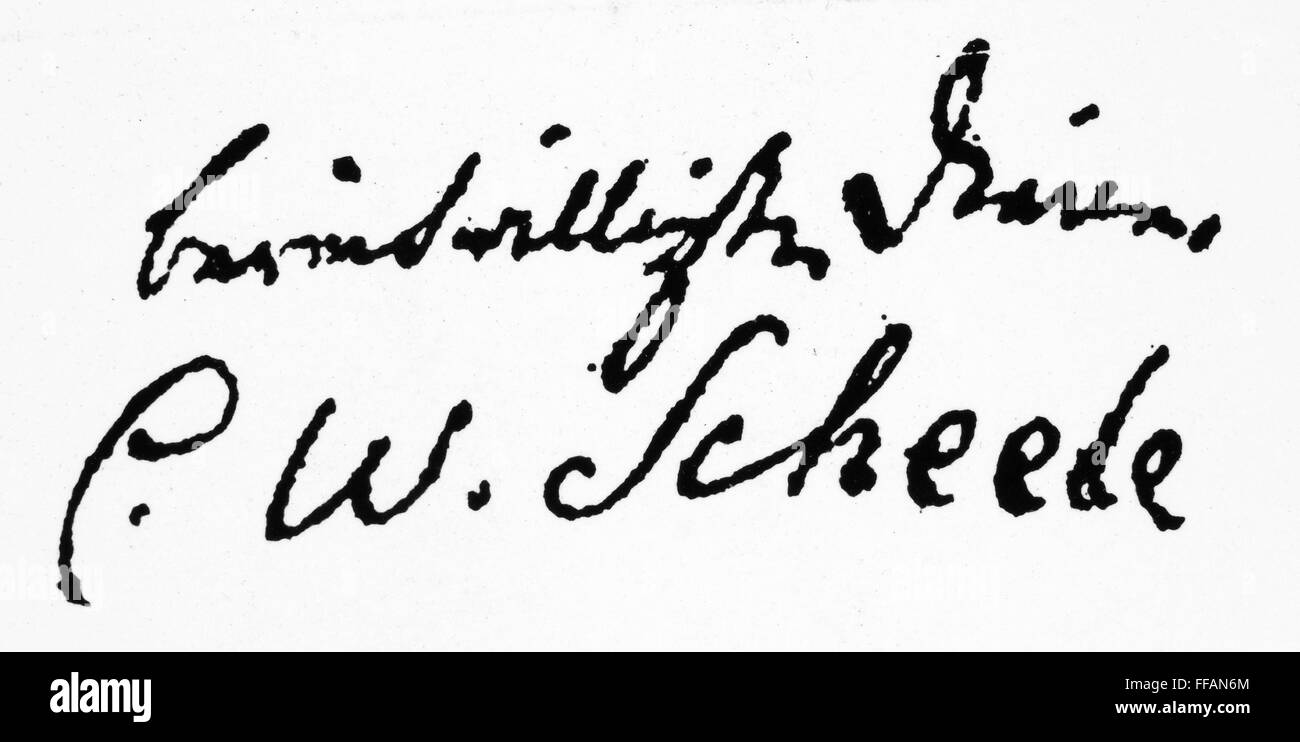 bereitwilligster Diener
C. W. Scheele
alamy
Image ID: FFAN6M
www.alamy.com